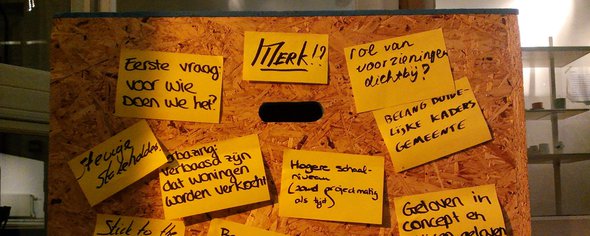 Eerste vraag:
voor wie
doen we het?
MERK!?
rol van
voorzieningen
dichtbij?
BELANG DUIDE-
LIJKE KADERS
GEMEENTE
Stakeholders
verbaasd zijn
dat woningen
worden verkocht
Hogere schaal-
niveau
(zowel projectmatig
als tijd)
Geloven in
concept en
geloven
Stick to the